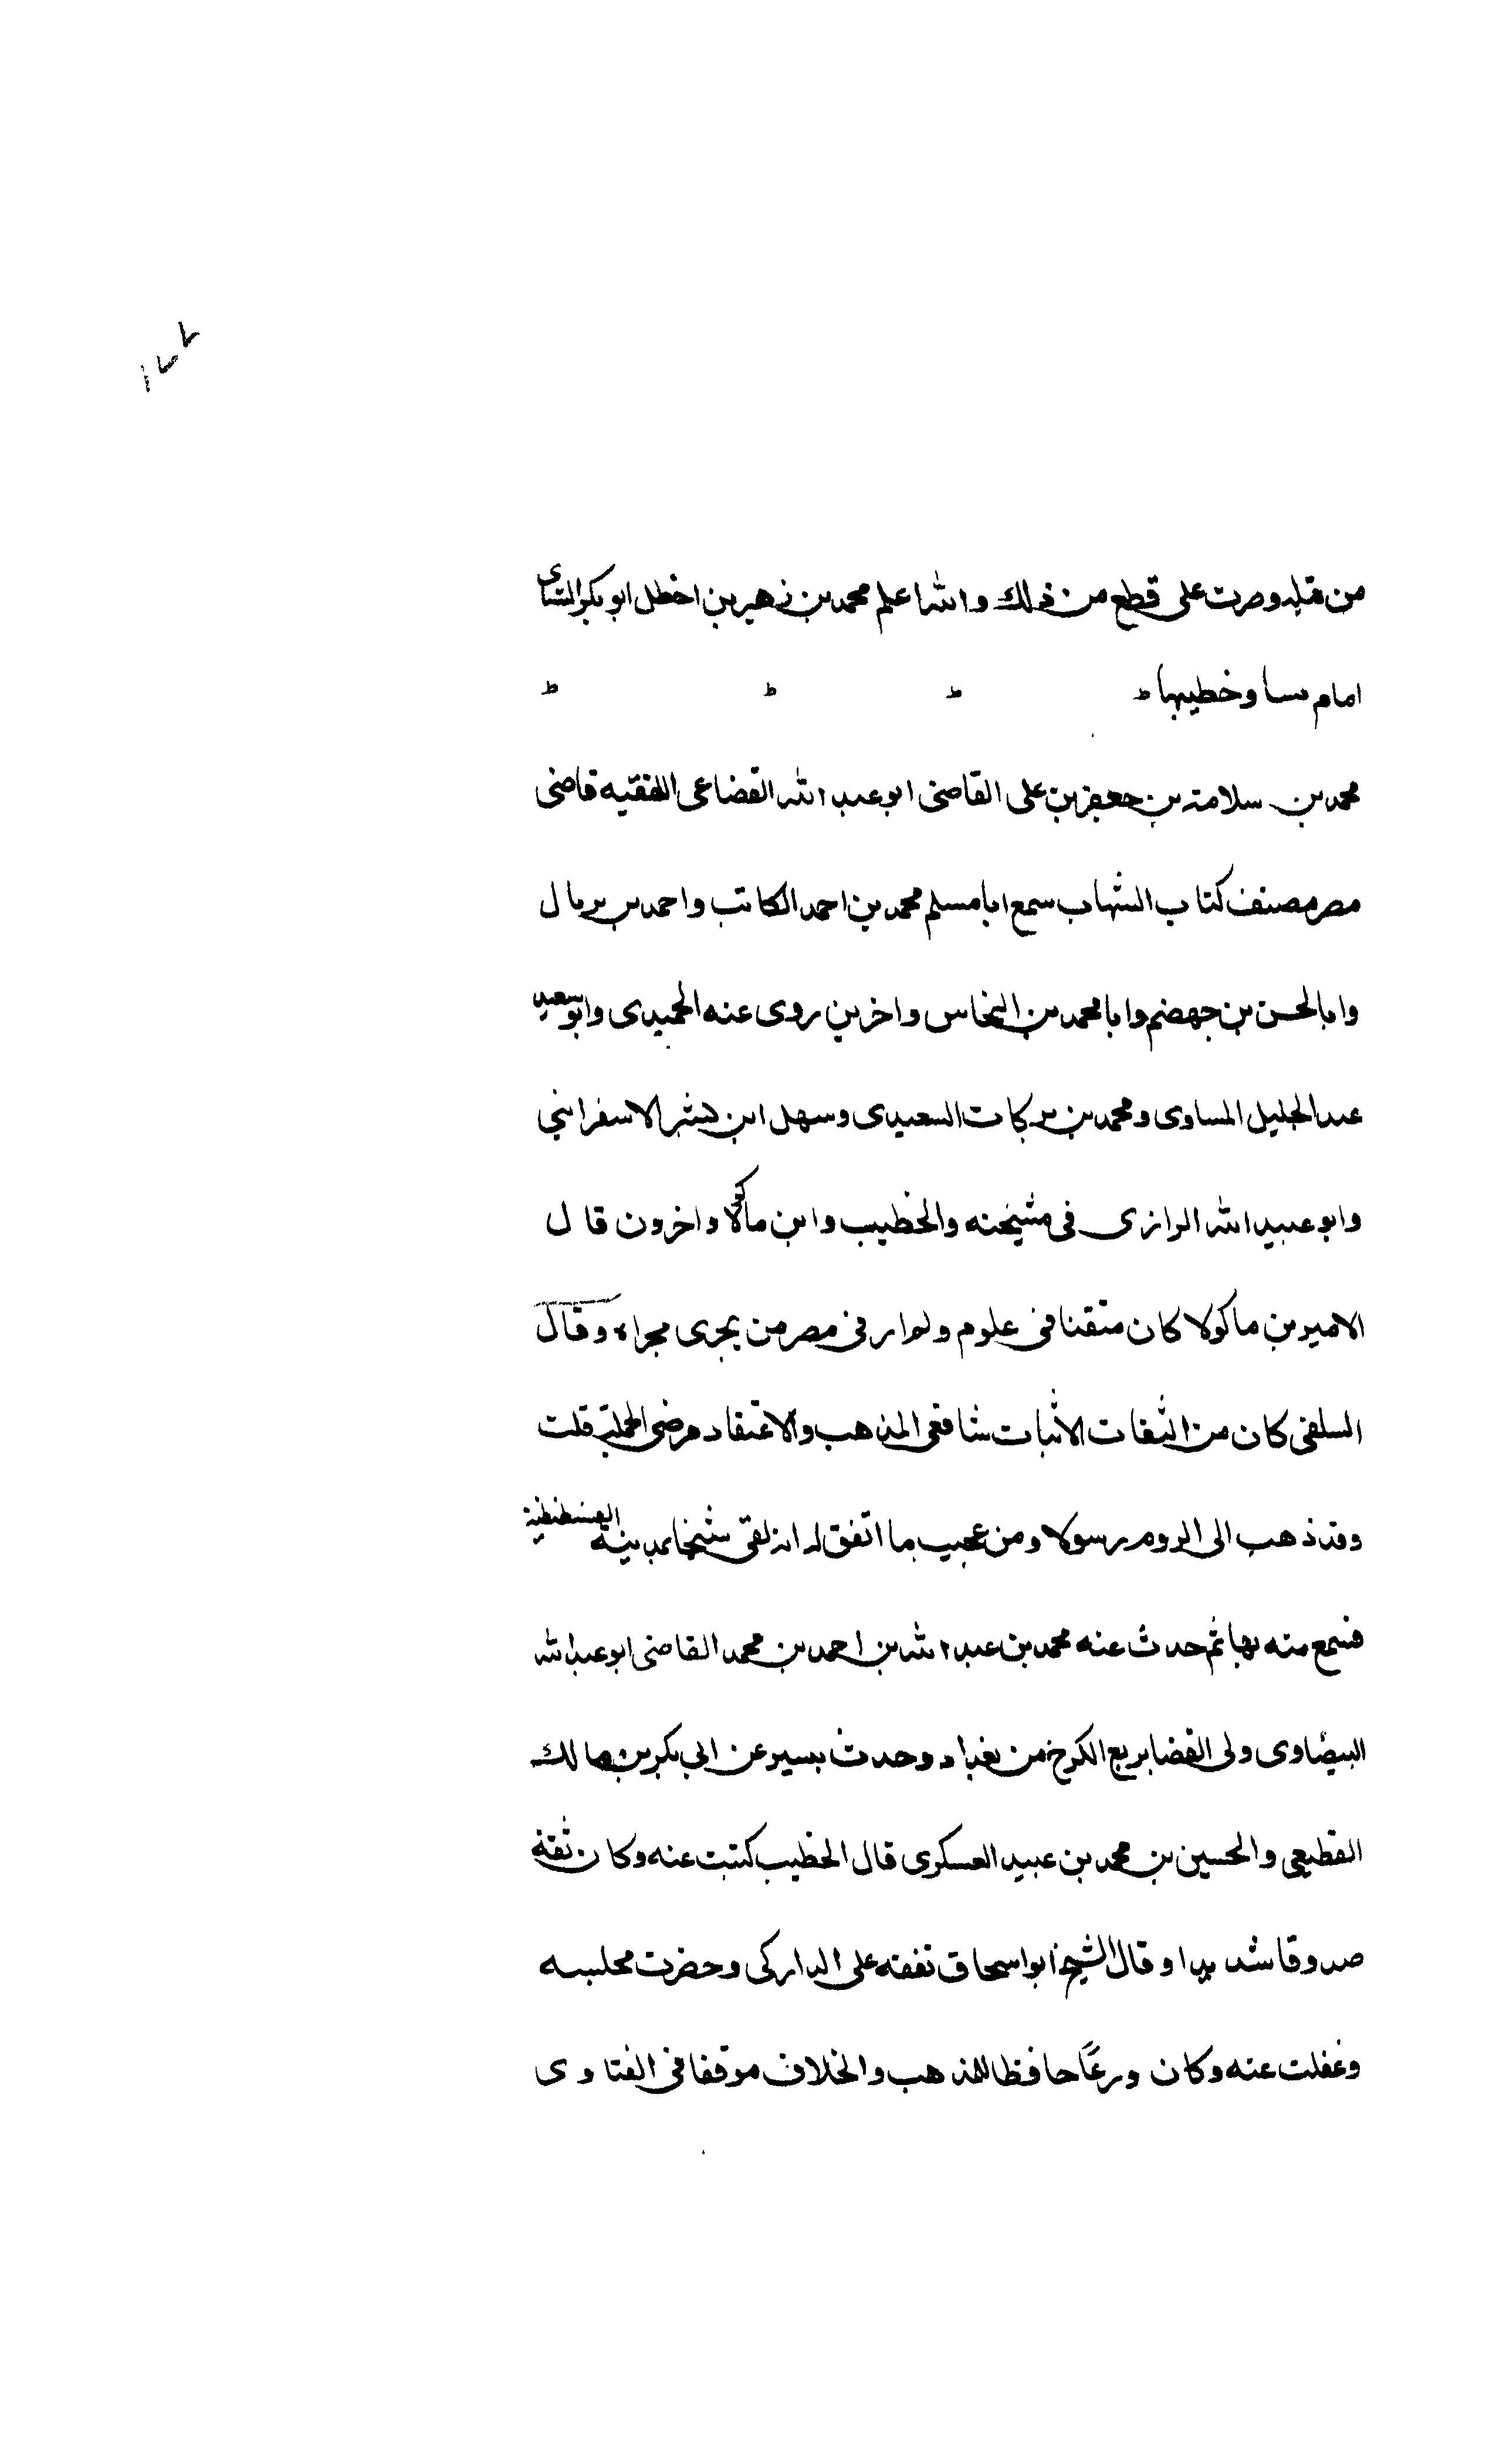 ١٧٧
من قبله وصرت على قطع من ذلك والله اعلم محمد بن زهير بن اخطل ابو بكر النساى
امام نسا وخطيبها
محمد بن سلامة بن جعفر بن على القاضى ابو عبد الله القضاعى الفقيه قاضى
مصر مصنف كتاب الشهاب سمع ابا مسلم محمد بن احمد الكاتب واحمد بن ثرثال
وابا الحسن بن جهضم وابا محمد بن النحاس واخرين روى عنه الحميدى وابو سعيد
عبد الجليل الساوى ومحمد بن بركات السعيدى وسهل ابن بشر الاسفراينى
وابو عبيد الله الرازى فى مشيخته والخطيب وابن ماكولا واخرون قال
الامير بن ماكولا كان متقنا فى علوم ولم ار فى مصر من يجرى مجراه وقال
السلفى كان من الثقات الاثبات شافعى المذهب والاعتقاد مرضى الجملة قلت
وقد ذهب الى الروم رسولا ومن عجيب ما اتفق له انه لقى شيخا بمدينة القسطنطينية
فسمع منه بها ثم حدث عنه محمد بن عبد الله بن احمد بن محمد القاضى ابو عبد الله
البيضاوى ولى القضا بربع الكرخ من بغداد وحدث بيسير عن ابى بكر بن مالك
القطيعى والحسين بن محمد بن عبيد العسكرى قال الخطيب كتبت عنه وكان ثقة
صدوقا شديدا وقال الشيخ ابو اسحاق تفقه على الداركى وحضرت مجلسه
وعقلت عنه وكان ورعًا حافظا للمذهب والخلاف موقفا فى الفتاوى